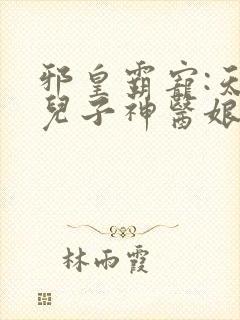 邪皇霸寵:天
兒子神醫娘
林雨霞